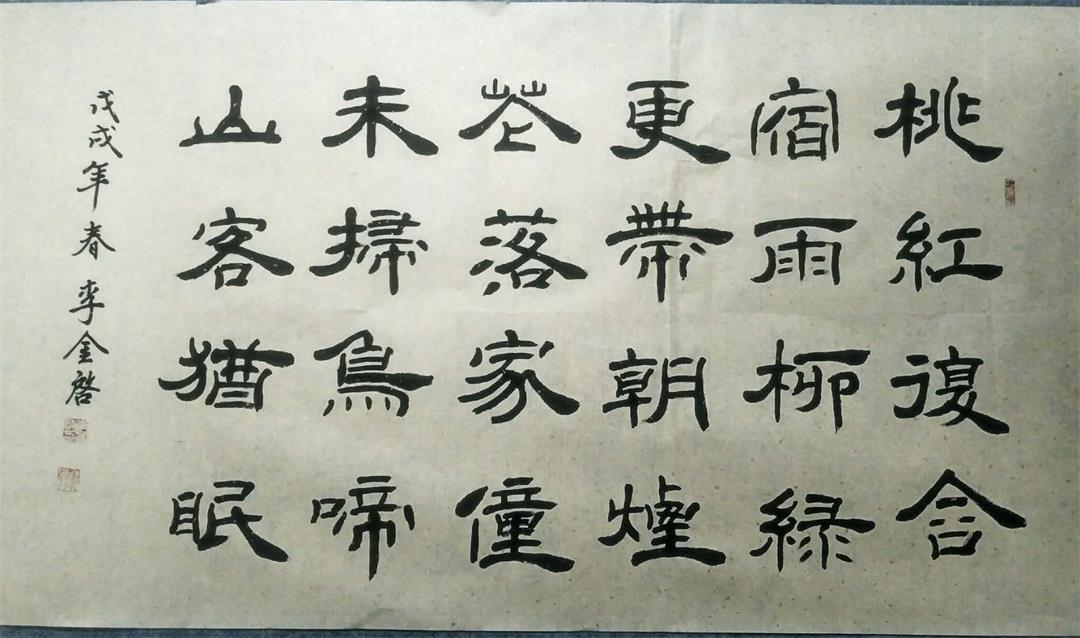 桃紅復含
宿雨柳緑
更帶朝煙
花落家僮
未掃鳥啼
山客猶眠
戊戌年春 李金啓